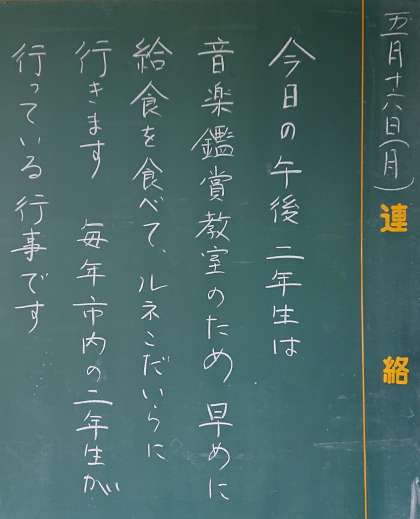 五月十六日(月)
連絡
今日の午後 二年生は
音楽鑑賞教室のため 早めに
給食を食べて、ルネこだいらに
行きます 毎年市内の二年生が
行っている行事です